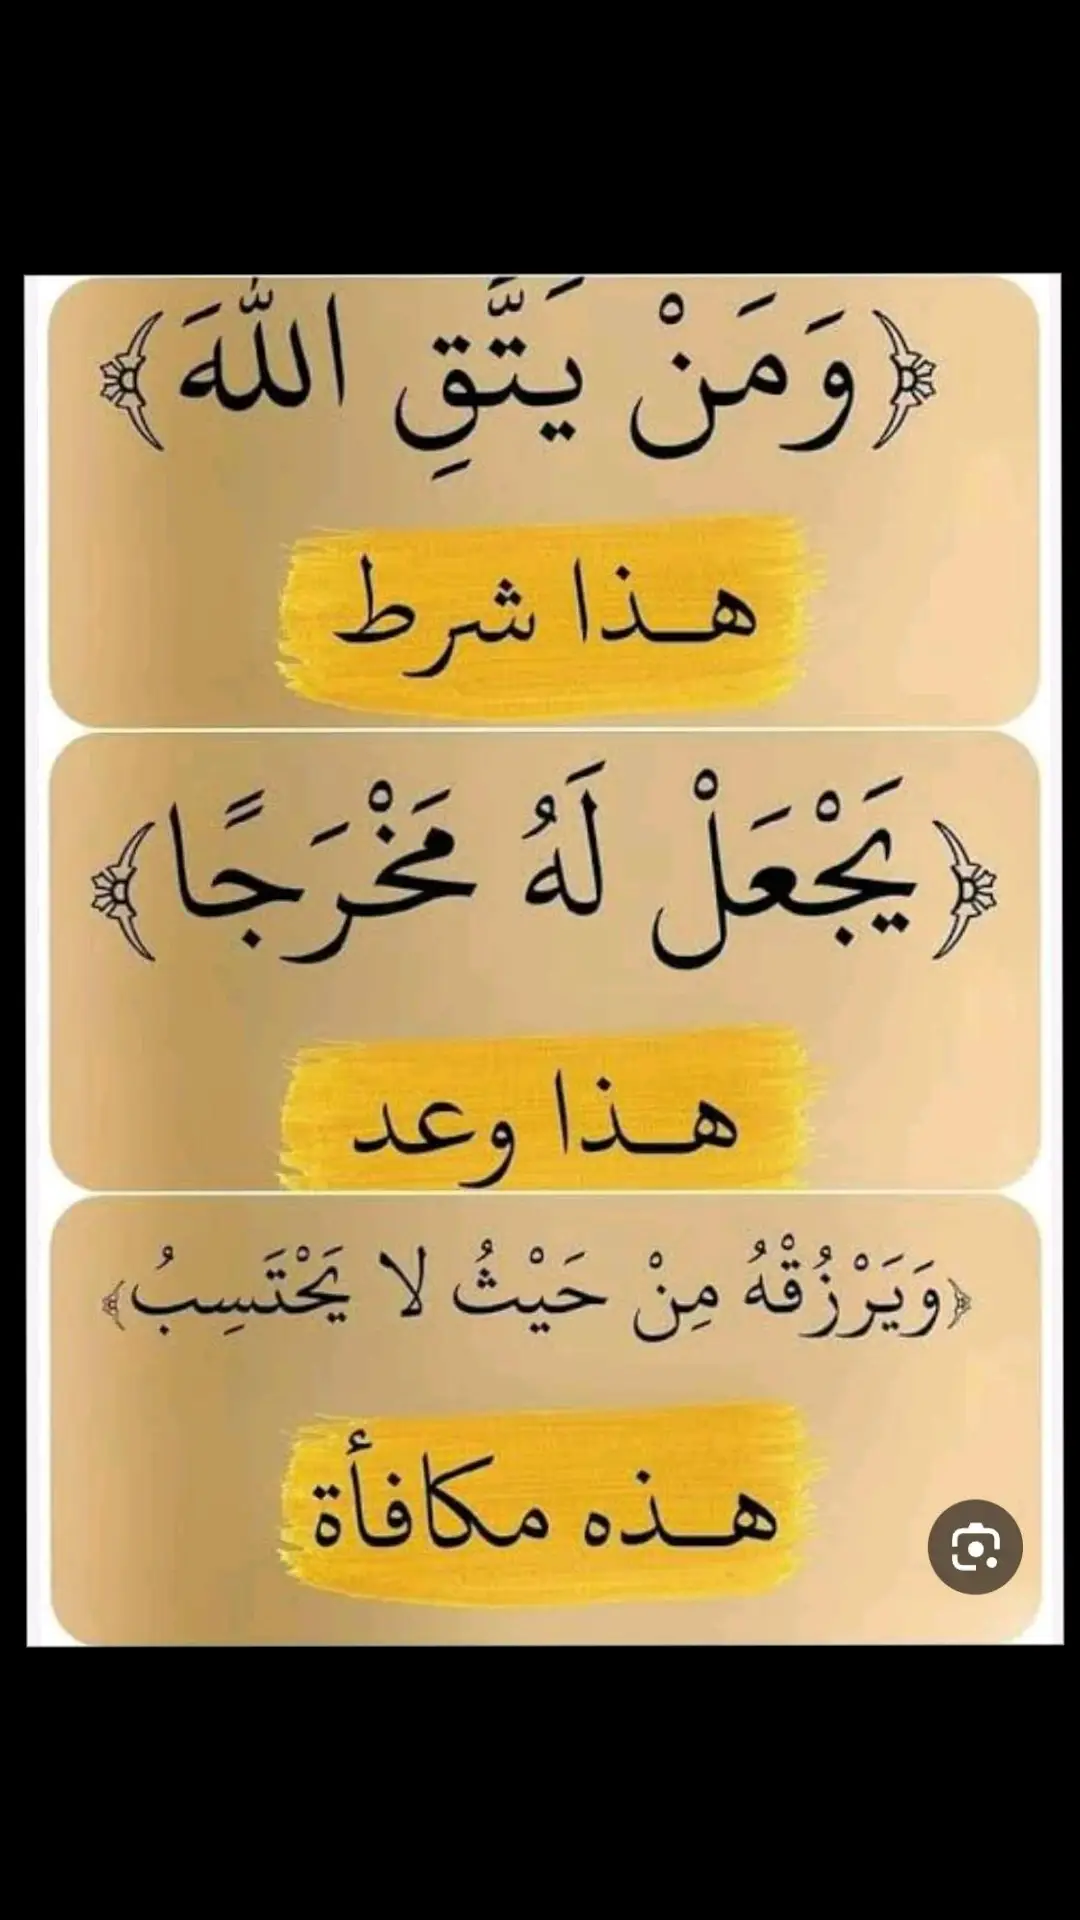 ﴿وَمَنْ يَتَّقِ اللَّهَ﴾
هـذا شرط
﴿يَجْعَلْ لَهُ مَخْرَجًا﴾
هـذا وعد
﴿وَيَرْزُقْهُ مِنْ حَيْثُ لا يَحْتَسِبُ﴾
هـذه مكافأة